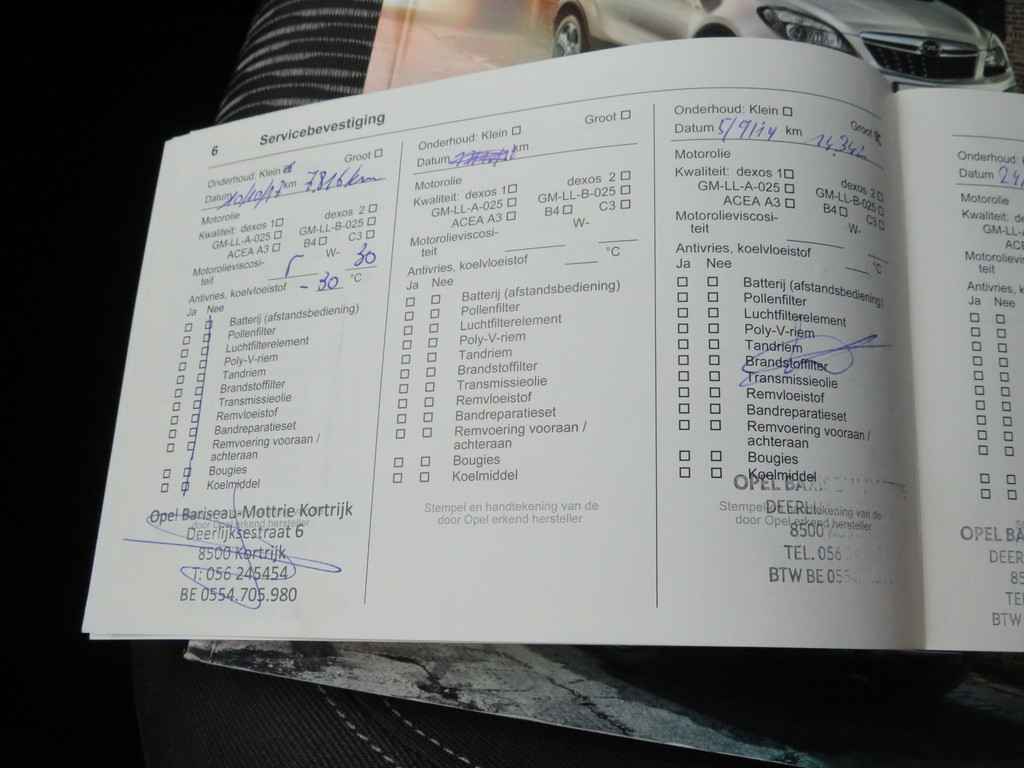 6 Servicebevestiging
Onderhoud: Klein Groot
Datum km 7.816 km
Motorolie
Kwaliteit: dexos 1 dexos 2
GM-LL-A-025 GM-LL-B-025
ACEA A3 B4 C3
Motorolieviscosi- W- 30
teit
Antivries, koelvloeistof -30 °C
Ja Nee
Batterij (afstandsbediening)
Pollenfilter
Luchtfilterelement
Poly-V-riem
Tandriem
Brandstoffilter
Transmissieolie
Remvloeistof
Bandreparatieset
Remvoering vooraan /
achteraan
Bougies
Koelmiddel
Opel Bariseau-Mottrie Kortrijk
door Opel erkend hersteller
Deerlijksestraat 6
8500 Kortrijk
T: 056 245454
BE 0554.705.980
Onderhoud: Klein Groot
Datum km
Motorolie
Kwaliteit: dexos 1 dexos 2
GM-LL-A-025 GM-LL-B-025
ACEA A3 B4 C3
Motorolieviscosi- W-
teit
Antivries, koelvloeistof °C
Ja Nee
Batterij (afstandsbediening)
Pollenfilter
Luchtfilterelement
Poly-V-riem
Tandriem
Brandstoffilter
Transmissieolie
Remvloeistof
Bandreparatieset
Remvoering vooraan /
achteraan
Bougies
Koelmiddel
Stempel en handtekening van de
door Opel erkend hersteller
Onderhoud: Klein Groot
Datum 5/9/14 km
Motorolie
Kwaliteit: dexos 1 dexos 2
GM-LL-A-025 GM-LL-B-025
ACEA A3 B4 C3
Motorolieviscosi- W-
teit
Antivries, koelvloeistof °C
Ja Nee
Batterij (afstandsbediening)
Pollenfilter
Luchtfilterelement
Poly-V-riem
Tandriem
Brandstoffilter
Transmissieolie
Remvloeistof
Bandreparatieset
Remvoering vooraan /
achteraan
Bougies
Koelmiddel
OPEL
Stempel en handtekening van de
door Opel erkend hersteller
8500
TEL. 056
BTW BE
Onderhoud:
Datum
Motorolie
Kwaliteit:
teit
Ja Nee
OPEL
BTW